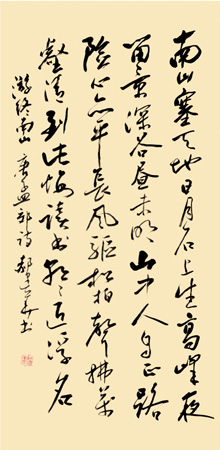 南山塞天地日月石上生高峰夜
留景深谷昼未明山中人自正路
险心亦平长风驱松柏声拂万
壑清到此悔读书朝々近浮名
游终南山 唐孟郊诗 书